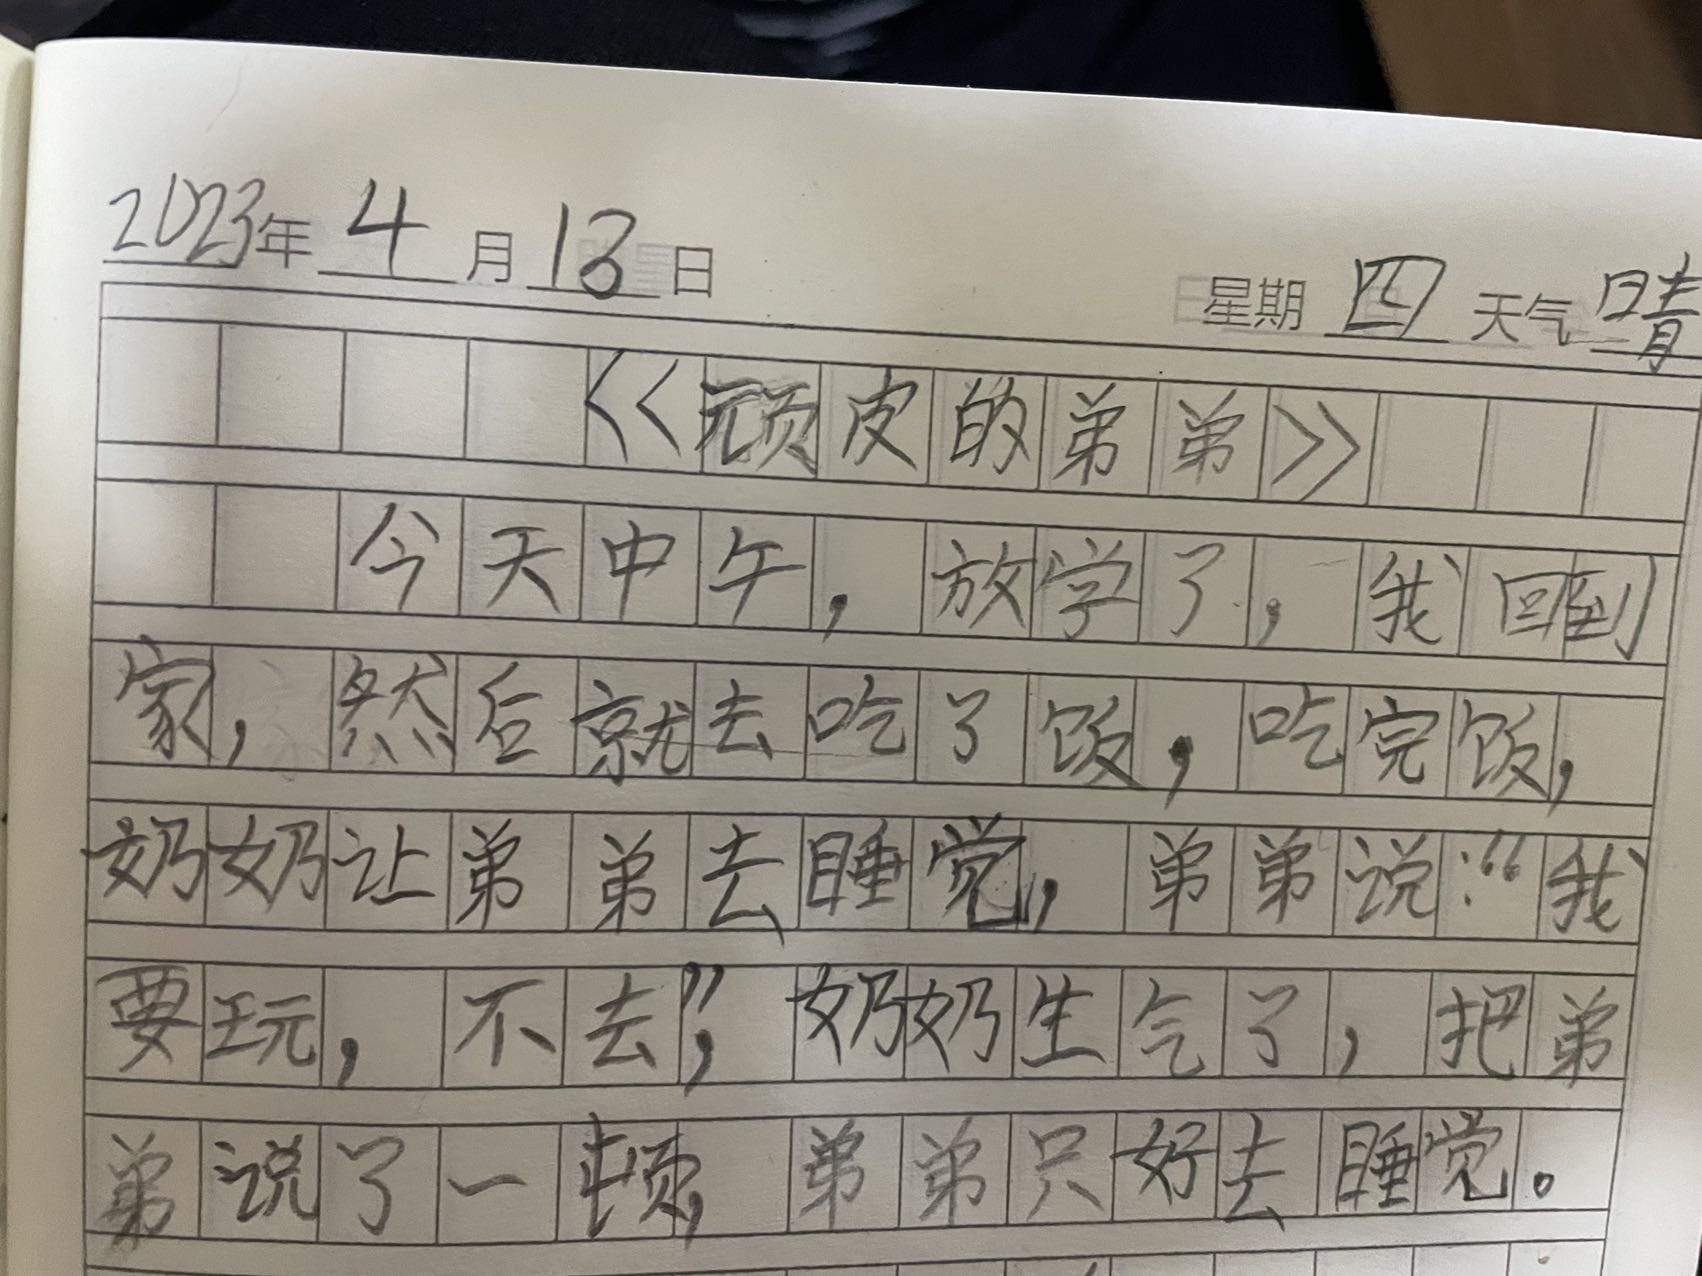 2023年 4 月 13 日 星期 四 天气 晴
<<顽皮的弟弟>>
今天中午，放学了，我回到
家，然后就去吃了饭，吃完饭，
奶奶让弟弟去睡觉，弟弟说：“我
要玩，不去”，奶奶生气了，把弟
弟说了一顿，弟弟只好去睡觉。